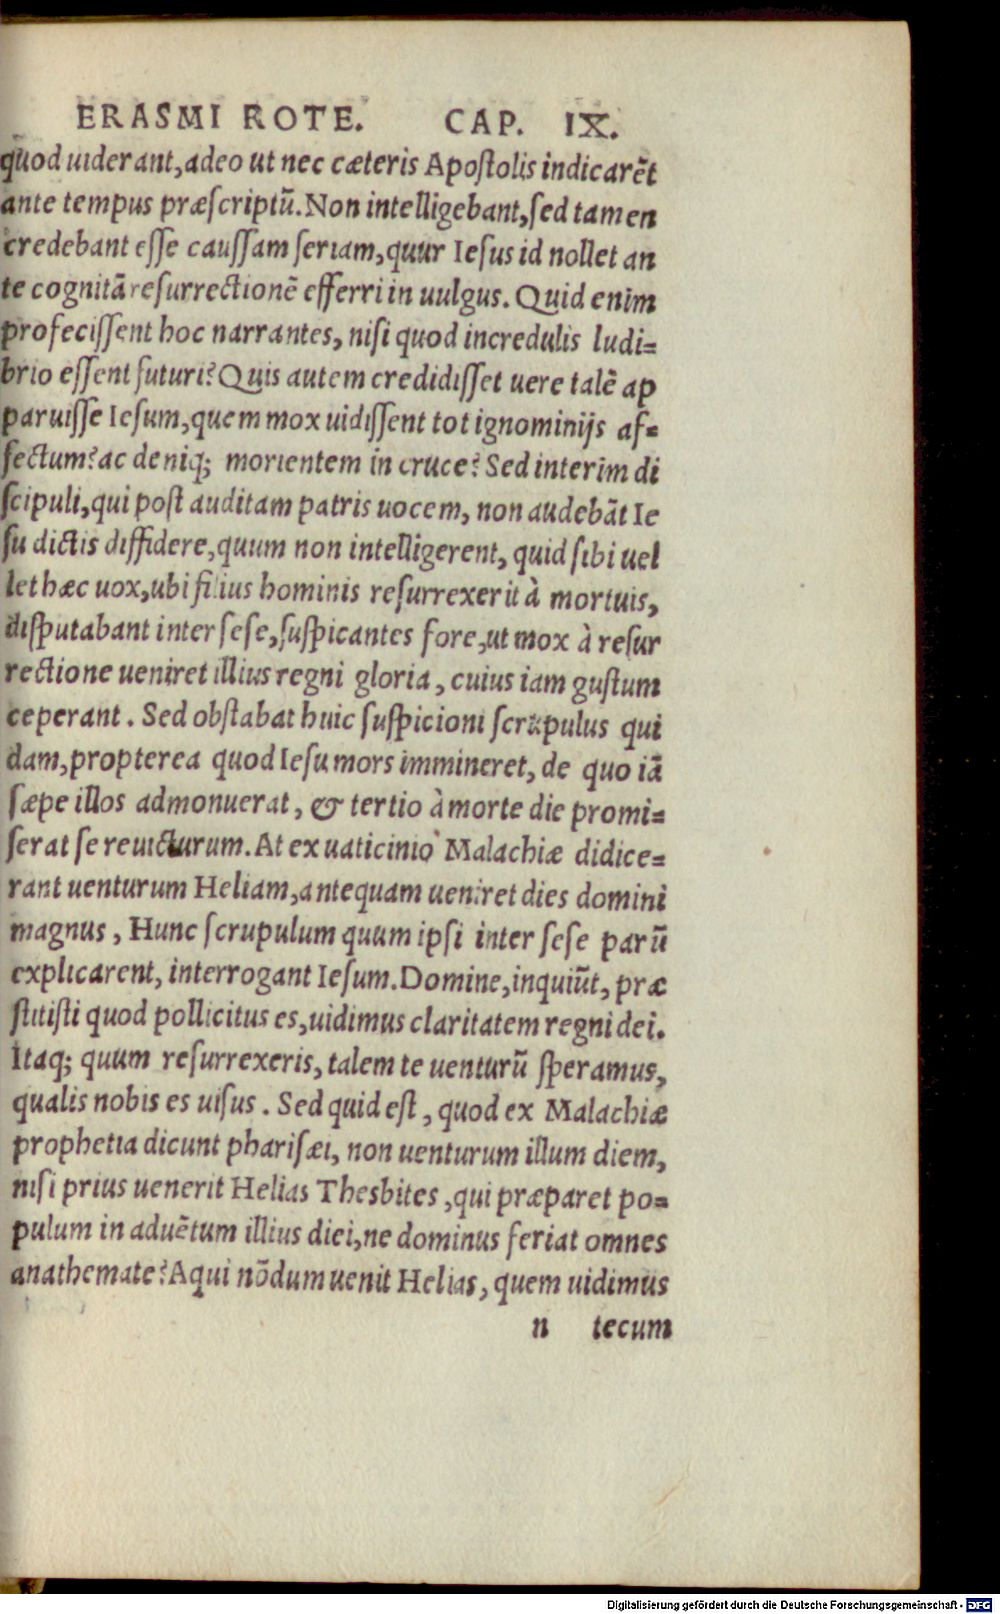 ERASMI ROTE. CAP. IX.
quod uiderant, adeo ut nec cæteris Apostolis indicarēt
ante tempus præscriptū. Non intelligebant, sed tamen
credebant esse caussam seriam, quur Iesus id nollet an
te cognitā resurrectionē efferri in uulgus. Quid enim
profecissent hoc narrantes, nisi quod incredulis ludi=
brio essent futuri? Quis autem credidisset uere talē ap
paruisse Iesum, quem mox uidissent tot ignominijs af=
fectum? ac deniq; morientem in cruce? Sed interim di
scipuli, qui post auditam patris uocem, non audebāt Ie
su dictis diffidere, quum non intelligerent, quid sibi uel
let hæc uox, ubi filius hominis resurrexerit à mortuis,
disputabant inter sese, suspicantes fore, ut mox à resur
rectione ueniret illius regni gloria, cuius iam gustum
ceperant. Sed obstabat huic suspicioni scrupulus qui
dam, propterea quod Iesu mors immineret, de quo iā
sæpe illos admonuerat, & tertio à morte die promi=
serat se reuicturum. At ex uaticinio Malachiæ didice=
rant uenturum Heliam, antequam ueniret dies domini
magnus, Hunc scrupulum quum ipsi inter sese parū
explicarent, interrogant Iesum. Domine, inquiūt, præ
stitisti quod pollicitus es, uidimus claritatem regni dei.
Itaq; quum resurrexeris, talem te uenturū speramus,
qualis nobis es uisus. Sed quid est, quod ex Malachiæ
prophetia dicunt pharisæi, non uenturum illum diem,
nisi prius uenerit Helias Thesbites, qui præparet po=
pulum in aduētum illius diei, ne dominus feriat omnes
anathemate? Aqui nōdum uenit Helias, quem uidimus
n tecum
Digitalisierung gefördert durch die Deutsche Forschungsgemeinschaft - DFG